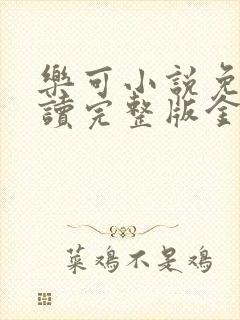 樂可小說免
讀完整版全
菜鸡不是鸡